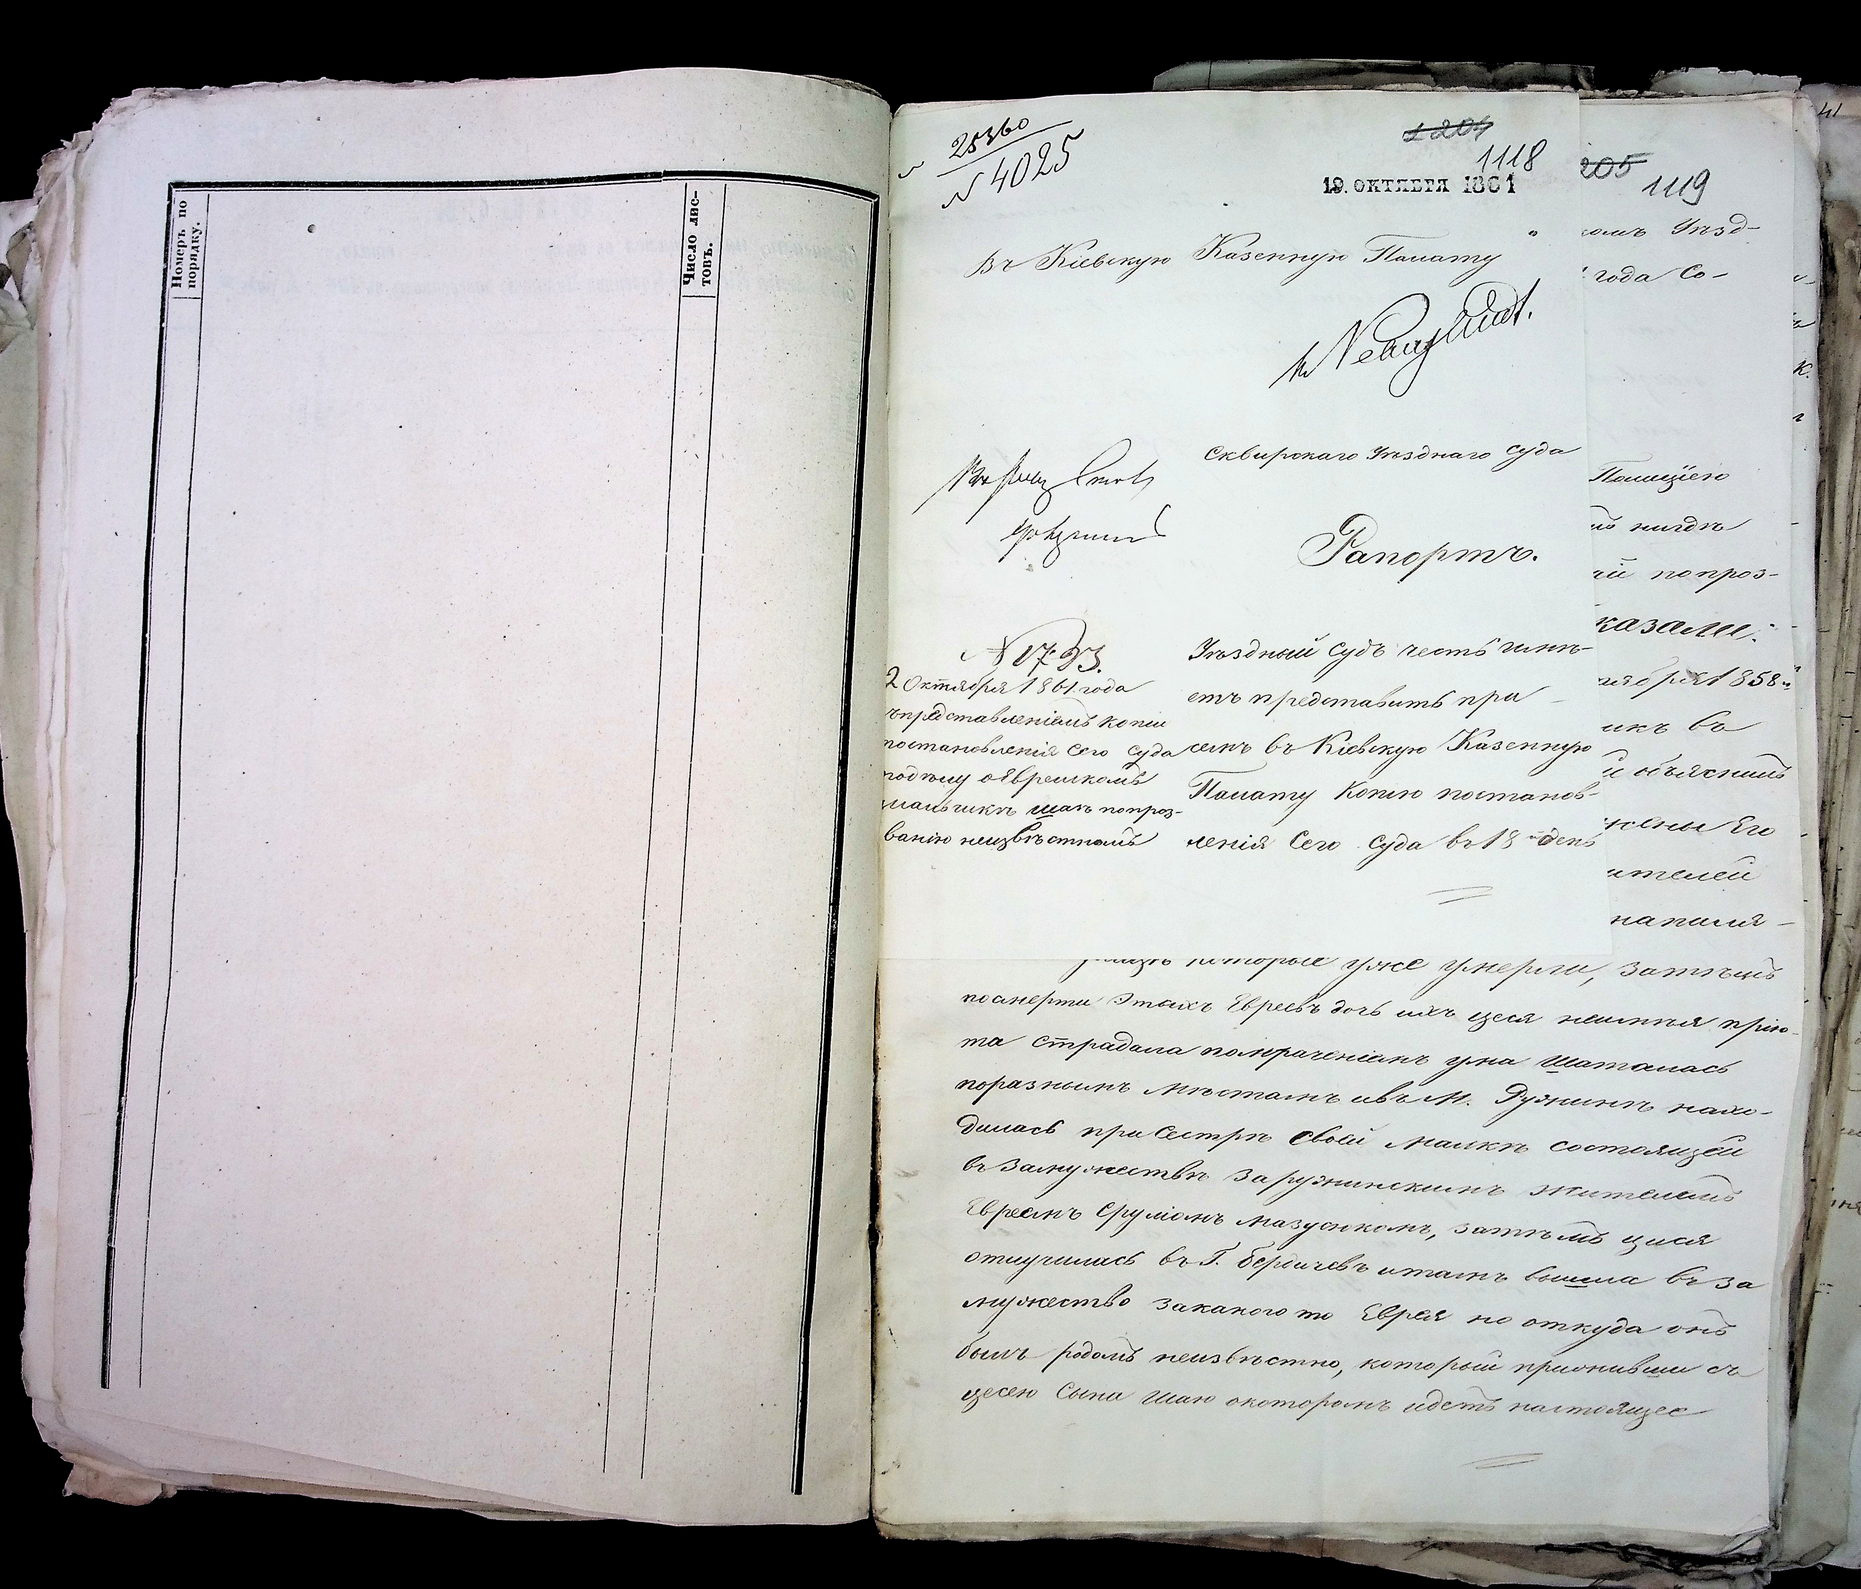 Номеръ по
порядку.
Число лис-
товъ.
25360
№ 4025
1204
1118
19. ОКТЯБРЯ 1861
Въ Кіевскую Казенную Палату
Сквирскаго Уѣзднаго Суда
Рапортъ.
№ 1793.
2 Октября 1861 года
съ представленіемъ копіи
постановленія сего суда
о еврейскомъ
мальчикѣ Шаѣ попроз-
ванію неизвѣстномъ
Уѣздный Судъ честь имѣ-
етъ представить при
семъ въ Кіевскую Казенную
Палату Копію постанов-
ленія Сего Суда въ 18 день
205
1119
омъ Уѣзд-
года Со-
Полиціею
нигдѣ
попроз-
казали:
1858
икъ въ
объяснилъ
жены Его
ителей
которые уже умерли, затѣмъ
посмерти Этихъ Евреевъ дочь ихъ Цеся неимѣя прію-
та страдала помраченіемъ ума шаталась
поразнымъ мѣстамъ ивъ М. Ружинѣ нахо-
дилась при Сестрѣ Своей Малкѣ состоящей
въ Замужествѣ За ружинскимъ жителемъ
Евреемъ Срулiомъ Мазусикомъ, затѣмъ Цися
отлучилась въ Г. Бердичевъ итамъ вышла въ за
мужество закакого то Еврея но откуда онъ
былъ родомъ неизвѣстно, который приживши съ
Цесею Сына Шаю окоторомъ идетъ настоящее